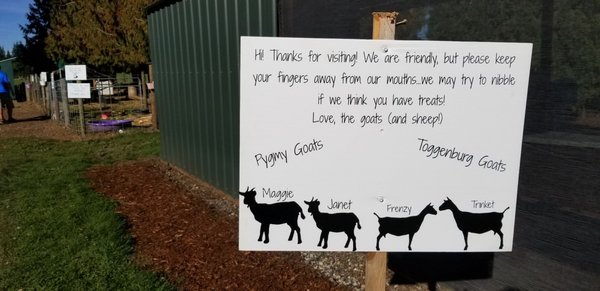 Hi! Thanks for visiting! We are friendly, but please keep
your fingers away from our mouths...we may try to nibble
if we think you have treats!
Love, the goats (and sheep!)
Pygmy Goats
Toggenburg Goats
Maggie
Janet
Frenzy
Trinket